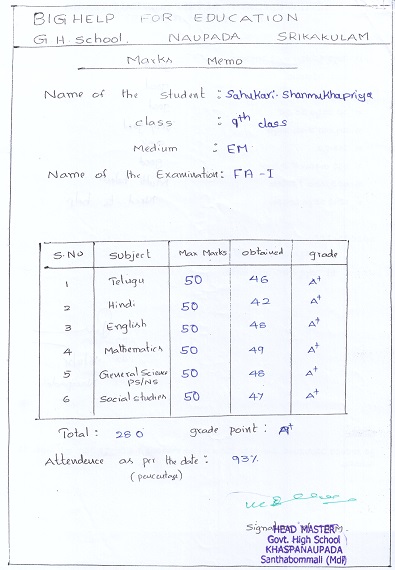 BIG HELP FOR EDUCATION
G.H. School. NAUPADA SRIKAKULAM
Marks Memo
Name of the student : Sahukari. Shanmukhapriya
class : 9th class
Medium : EM
Name of the Examination: FA - I
S.No Subject Max Marks obtained grade
1 Telugu 50 46 A+
2 Hindi 50 42 A+
3 English 50 48 A+
4 Mathematics 50 49 A+
5 General Science PS/NS 50 48 A+
6 Social studies 50 47 A+
Total : 280 grade point : A+
Attendence as per the date : 93%
(percentage)
HEAD MASTER
Govt. High School
KHASPANAUPADA
Santhabommali (Mdl)